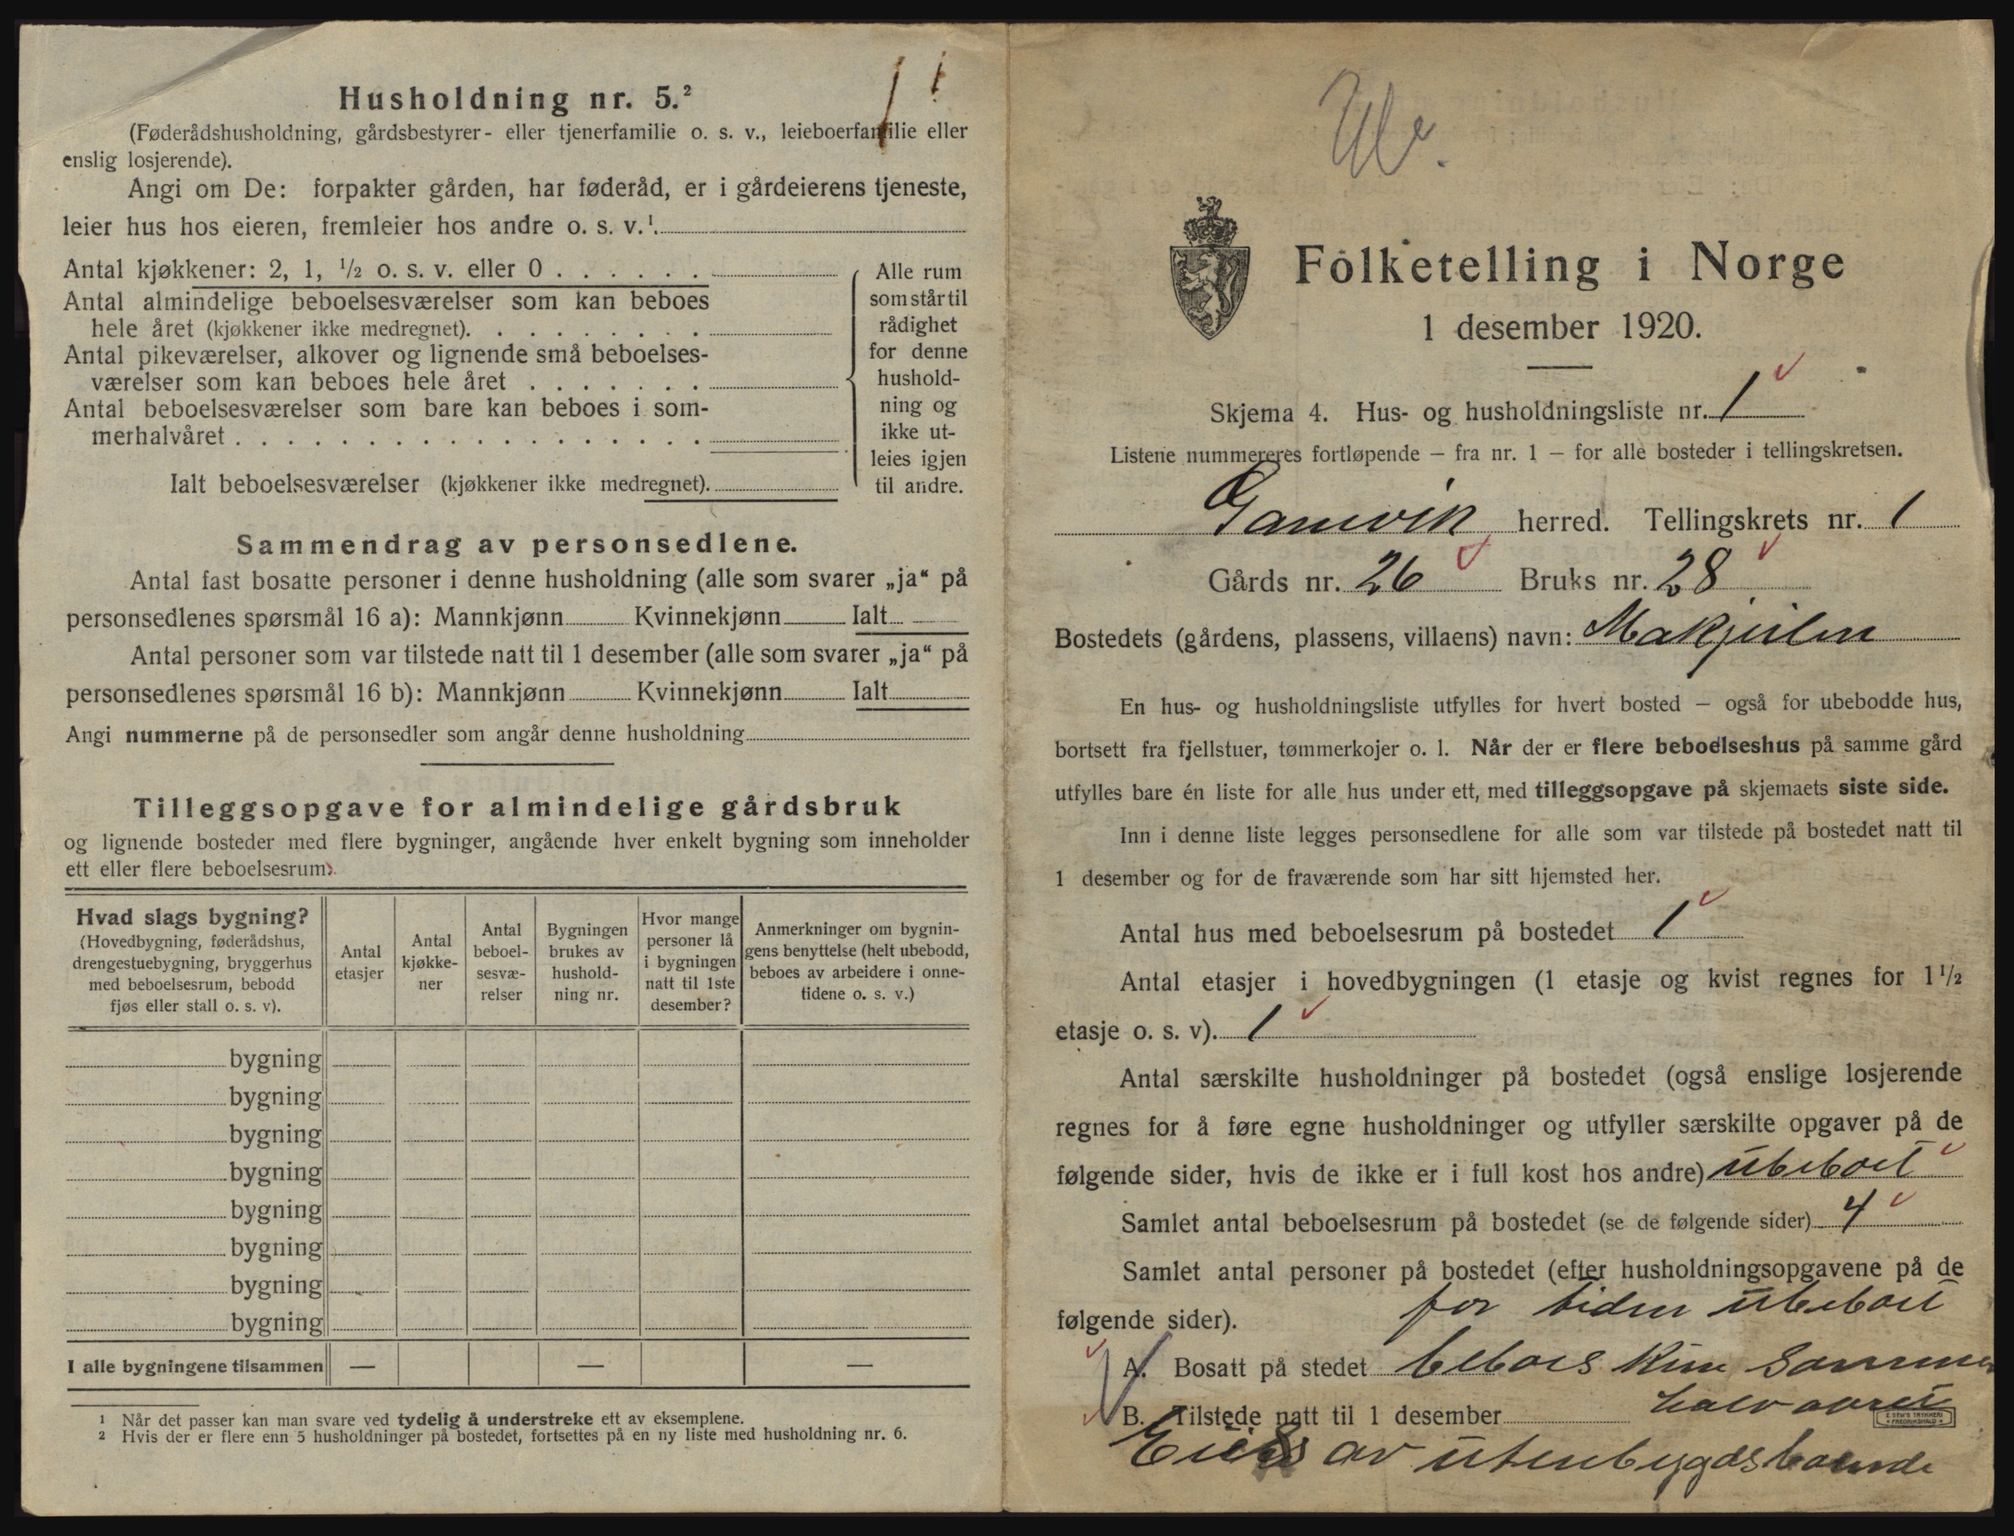 Husholdning nr. 5.²
(Føderådshusholdning, gårdsbestyrer- eller tjenerfamilie o. s. v., leieboerfamilie eller
enslig losjerende).
Angi om De: forpakter gården, har føderåd, er i gårdeierens tjeneste,
leier hus hos eieren, fremleier hos andre o. s. v.¹.
Antal kjøkkener: 2, 1, ½ o. s. v. eller 0 . . . . . .
Antal almindelige beboelsesværelser som kan beboes
hele året (kjøkkener ikke medregnet). . . . . . . . .
Antal pikeværelser, alkover og lignende små beboelses-
værelser som kan beboes hele året . . . . . . .
Antal beboelsesværelser som bare kan beboes i som-
merhalvåret . . . . . . . . . . . . . . . . . .
Ialt beboelsesværelser (kjøkkener ikke medregnet).
Alle rum
som står til
rådighet
for denne
hushold-
ning og
ikke ut-
leies igjen
til andre.
Sammendrag av personsedlene.
Antal fast bosatte personer i denne husholdning (alle som svarer „ja“ på
personsedlenes spørsmål 16 a): Mannkjønn Kvinnekjønn Ialt
Antal personer som var tilstede natt til 1 desember (alle som svarer „ja“ på
personsedlenes spørsmål 16 b): Mannkjønn Kvinnekjønn Ialt
Angi nummerne på de personsedler som angår denne husholdning
Tilleggsopgave for almindelige gårdsbruk
og lignende bosteder med flere bygninger, angående hver enkelt bygning som inneholder
ett eller flere beboelsesrum.
Hvad slags bygning?
(Hovedbygning, føderådshus,
drengestuebygning, bryggerhus
med beboelsesrum, bebodd
fjøs eller stall o. s. v).
Antal
etasjer
Antal
kjøkke-
ner
Antal
beboel-
sesvæ-
relser
Bygningen
brukes av
hushold-
ning nr.
Hvor mange
personer lå
i bygningen
natt til 1ste
desember?
Anmerkninger om bygnin-
gens benyttelse (helt ubebodd,
beboes av arbeidere i onne-
tidene o. s. v.)
bygning
bygning
bygning
bygning
bygning
bygning
bygning
bygning
I alle bygningene tilsammen — — —
¹ Når det passer kan man svare ved tydelig å understreke ett av eksemplene.
² Hvis der er flere enn 5 husholdninger på bostedet, fortsettes på en ny liste med husholdning nr. 6.
Folketelling i Norge
1 desember 1920.
Skjema 4. Hus- og husholdningsliste nr. 1
Listene nummereres fortløpende – fra nr. 1 – for alle bosteder i tellingskretsen.
Gamvik herred. Tellingskrets nr. 1
Gårds nr. 26 Bruks nr. 28
Bostedets (gårdens, plassens, villaens) navn:
En hus- og husholdningsliste utfylles for hvert bosted – også for ubebodde hus,
bortsett fra fjellstuer, tømmerkojer o. l. Når der er flere beboelseshus på samme gård
utfylles bare én liste for alle hus under ett, med tilleggsopgave på skjemaets siste side.
Inn i denne liste legges personsedlene for alle som var tilstede på bostedet natt til
1 desember og for de fraværende som har sitt hjemsted her.
Antal hus med beboelsesrum på bostedet 1
Antal etasjer i hovedbygningen (1 etasje og kvist regnes for 1½
etasje o. s. v). 1
Antal særskilte husholdninger på bostedet (også enslige losjerende
regnes for å føre egne husholdninger og utfyller særskilte opgaver på de
følgende sider, hvis de ikke er i full kost hos andre) ubeboet
Samlet antal beboelsesrum på bostedet (se de følgende sider) 4
Samlet antal personer på bostedet (efter husholdningsopgavene på de
følgende sider). for tiden ubeboet
A. Bosatt på stedet beboes kun sommer
halvaaret
B. Tilstede natt til 1 desember
E. SEM'S TRYKKERI
FREDRIKSHALD
av utenbygdsboende